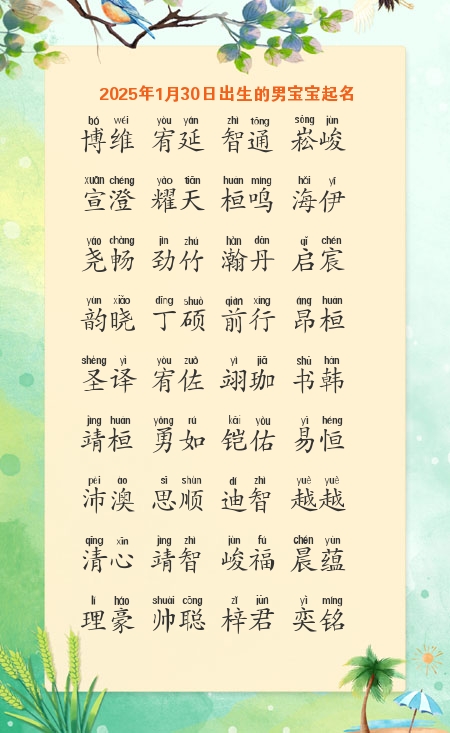 2025年1月30日出生的男宝宝起名
bó wéi yòu yán zhì tōng sōng jùn
博维 宥延 智通 崧峻
xuān chéng yào tiān huán míng hǎi yī
宣澄 耀天 桓鸣 海伊
yáo chàng jìn zhú hàn dān qǐ chén
尧畅 劲竹 瀚丹 启宸
yùn xiǎo dīng shuò qián xíng áng huán
韵晓 丁硕 前行 昂桓
shèng yì yòu zuǒ yì jiā shū hán
圣译 宥佐 翊珈 书韩
jìng huán yǒng rú kǎi yòu yì héng
靖桓 勇如 铠佑 易恒
pèi ào sī shùn dí zhì yuè yuè
沛澳 思顺 迪智 越越
qīng xīn jìng zhì jùn fú chén yùn
清心 靖智 峻福 晨蕴
lǐ háo shuài cōng zǐ jūn yì míng
理豪 帅聪 梓君 奕铭